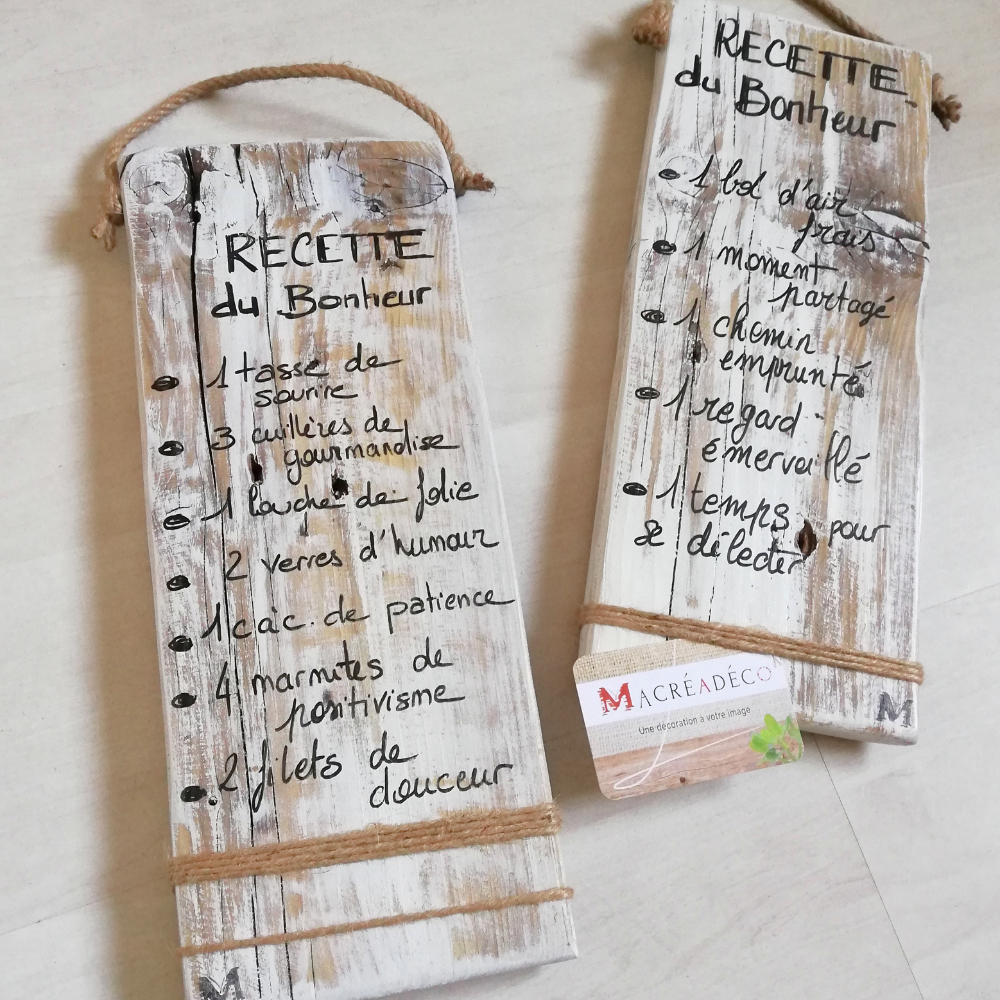 RECETTE
du Bonheur
1 tasse de
sourire
3 cuillères de
gourmandise
1 louche de folie
2 verres d'humour
1 càc. de patience
4 marmites de
positivisme
2 filets de
douceur
M
RECETTE
du Bonheur
1 bol d'air
frais
1 moment
partagé
1 chemin
emprunté
1 regard
émerveillé
1 temps pour
se délecter
MACRÉADÉCO
Une décoration à votre image
M